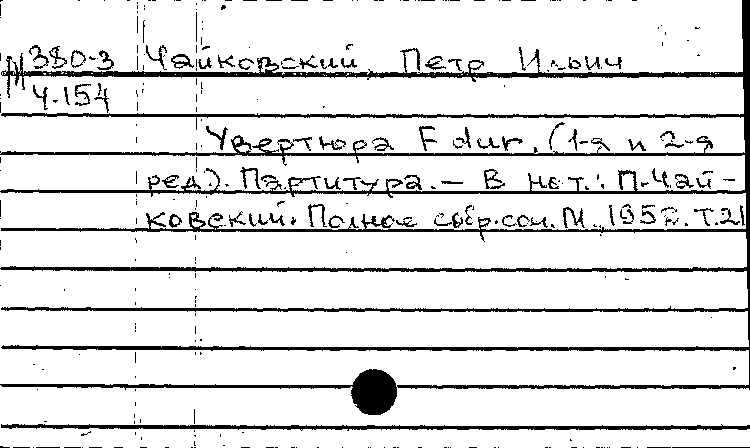 М 380-3 Чайковский, Петр Ильич
Ч.154
Увертюра F dur. (1-я и 2-я
ред). Партитура. — В нот.: П. Чай-
ковский. Полное собр. соч. М., 1952. Т.21